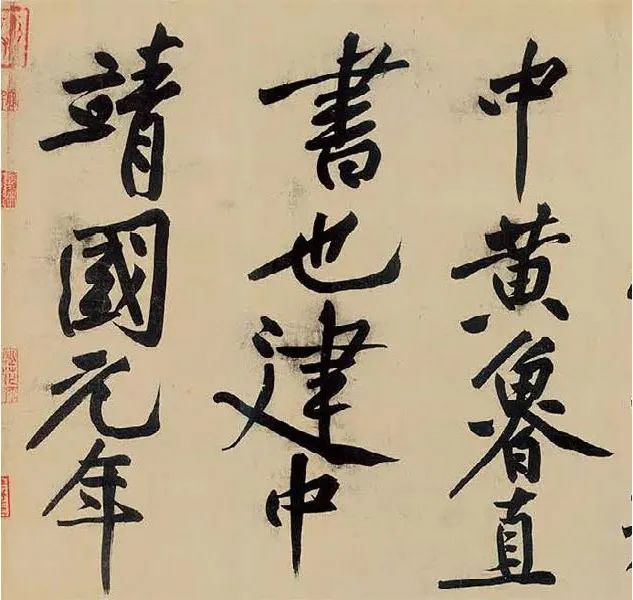 中黃魯直
書也建中
靖國元年